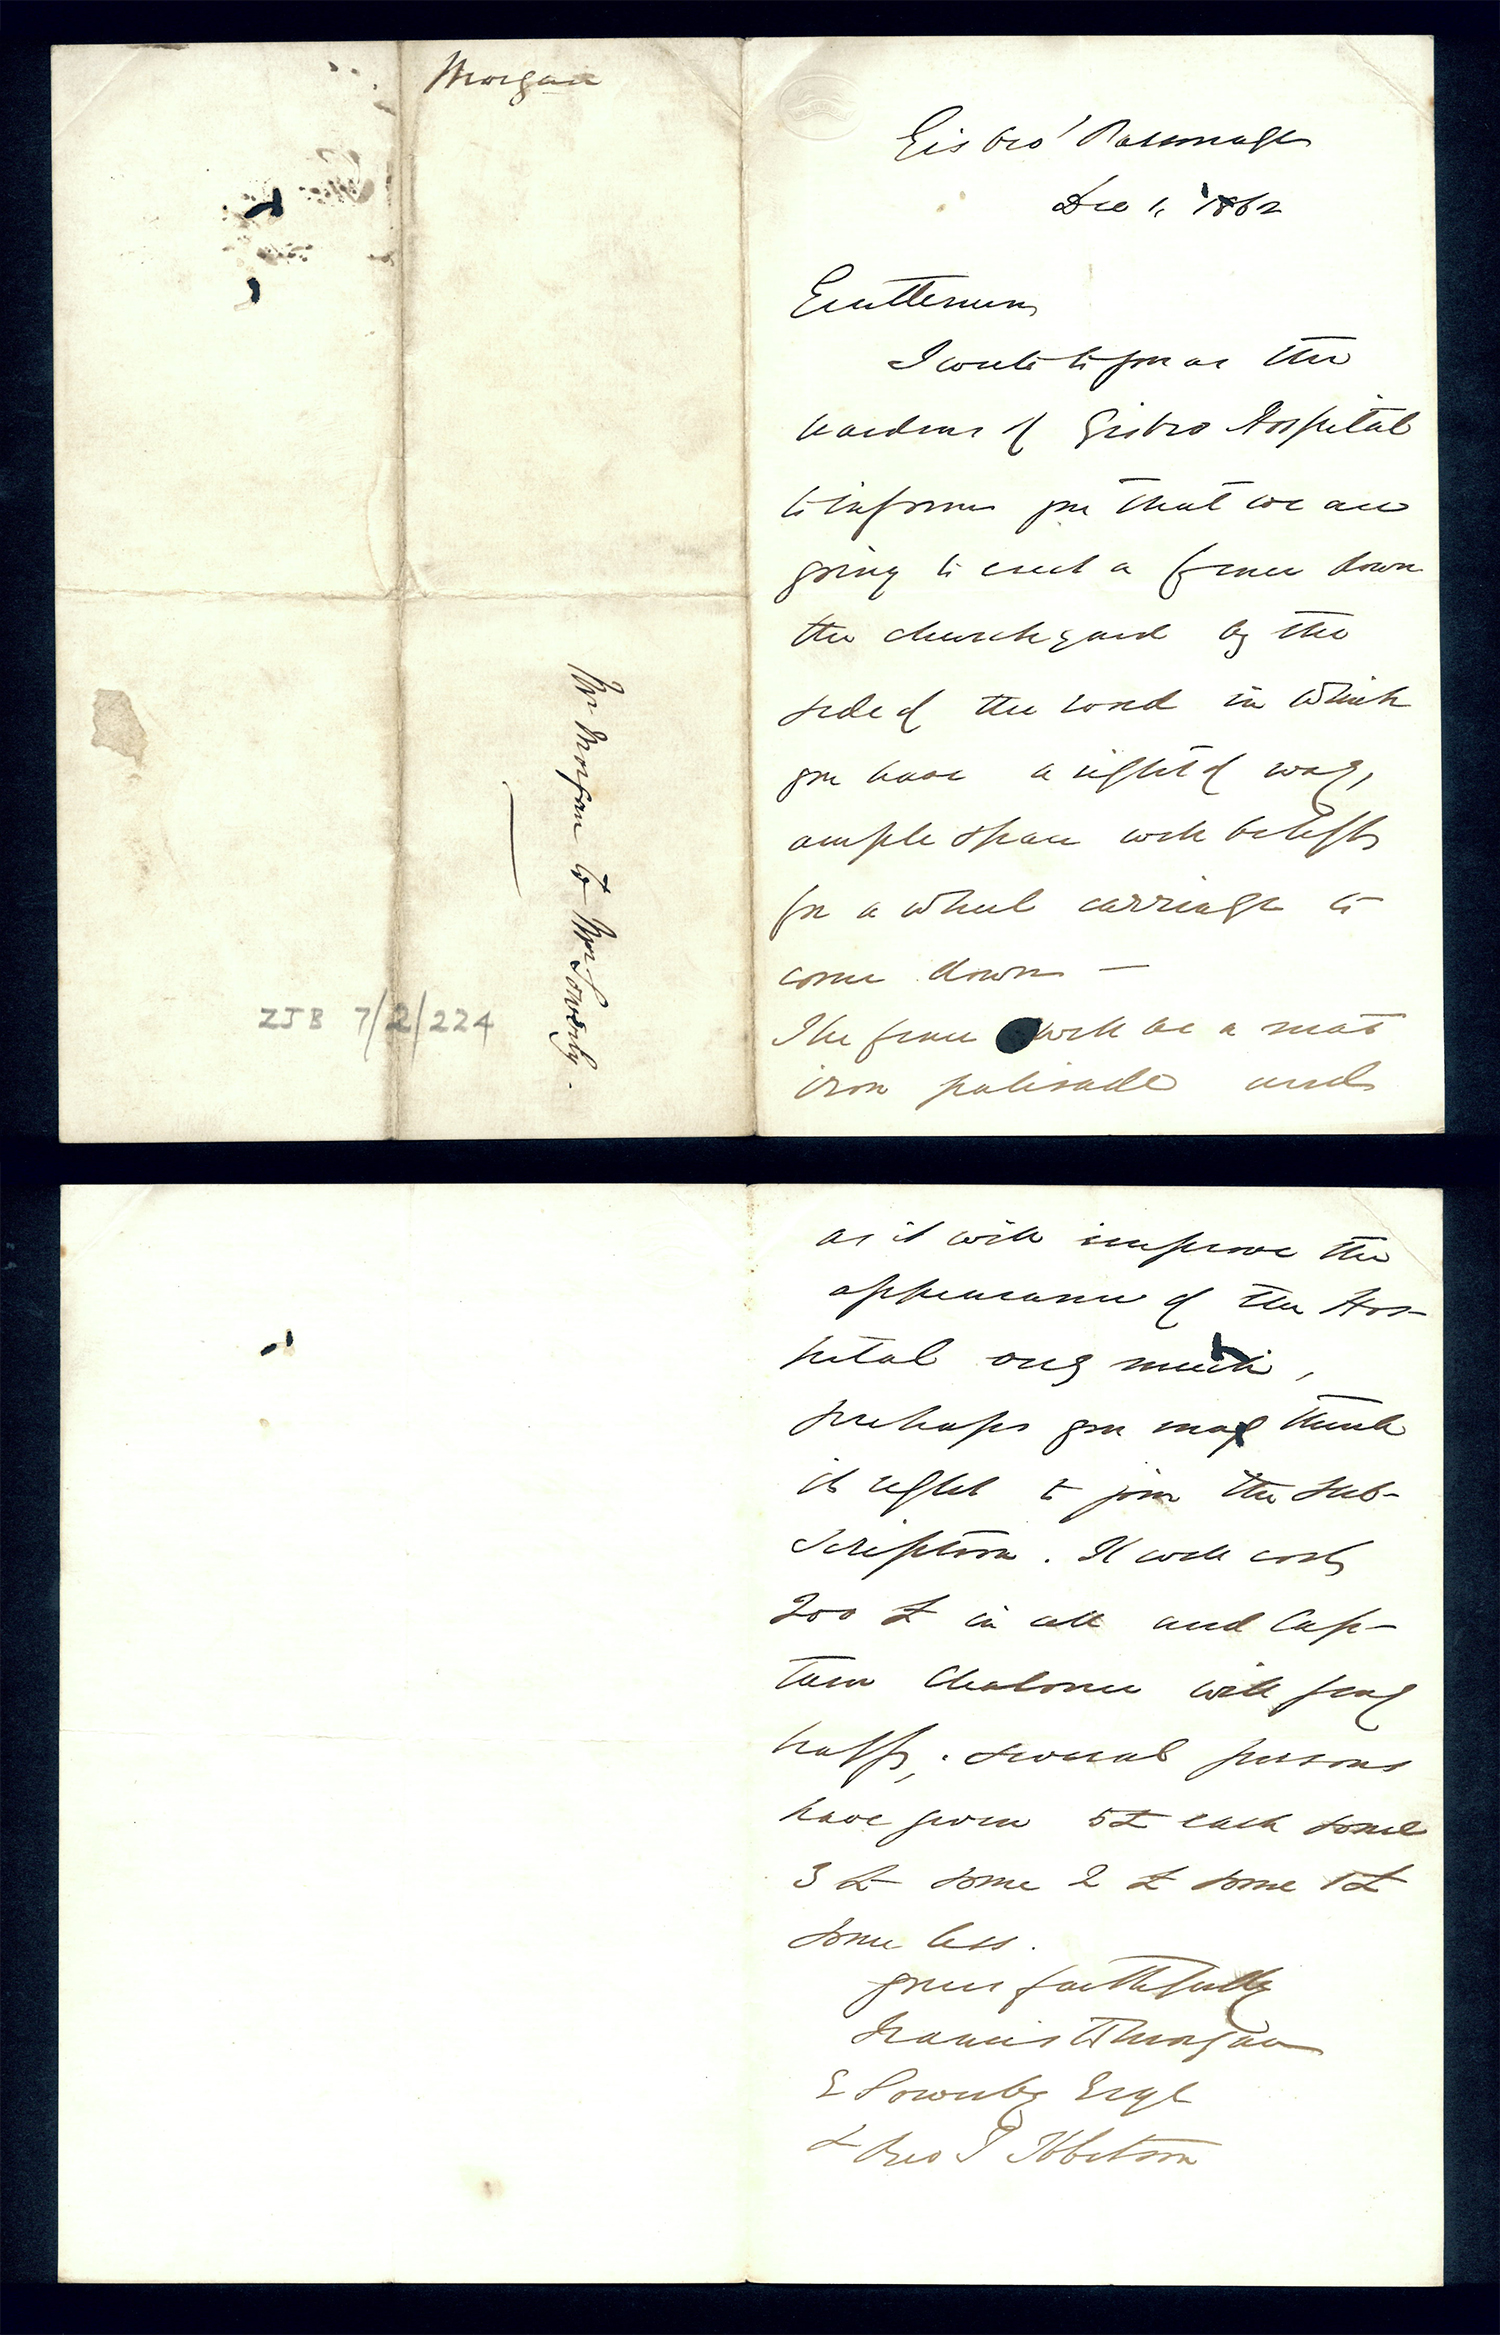 Morgan
Mr Morgan to Mr Sowerby.
ZJB 7/2/224
Gisbro' Parsonage
Dec 1, 1862
Gentlemen
I write to you as the
wardens of Gisbro Hospital
to inform you that we are
going to erect a fence down
the churchyard by the
side of the road in which
you have a right of way,
ample space will be left
for a wheel carriage to
come down —
The fence will be a neat
iron palisade and
as it will improve the
appearance of the Hos-
pital very much,
perhaps you may think
it right to join the sub-
scription. It will cost
200 £ in all and Cap-
tain Chaloner will pay
half, several persons
have given 5£ each some
3 £ some 2 £ some 1£
some less.
yours faithfully
Francis Morgan
E Sowerby Esqr
& Geo T Ibbetson